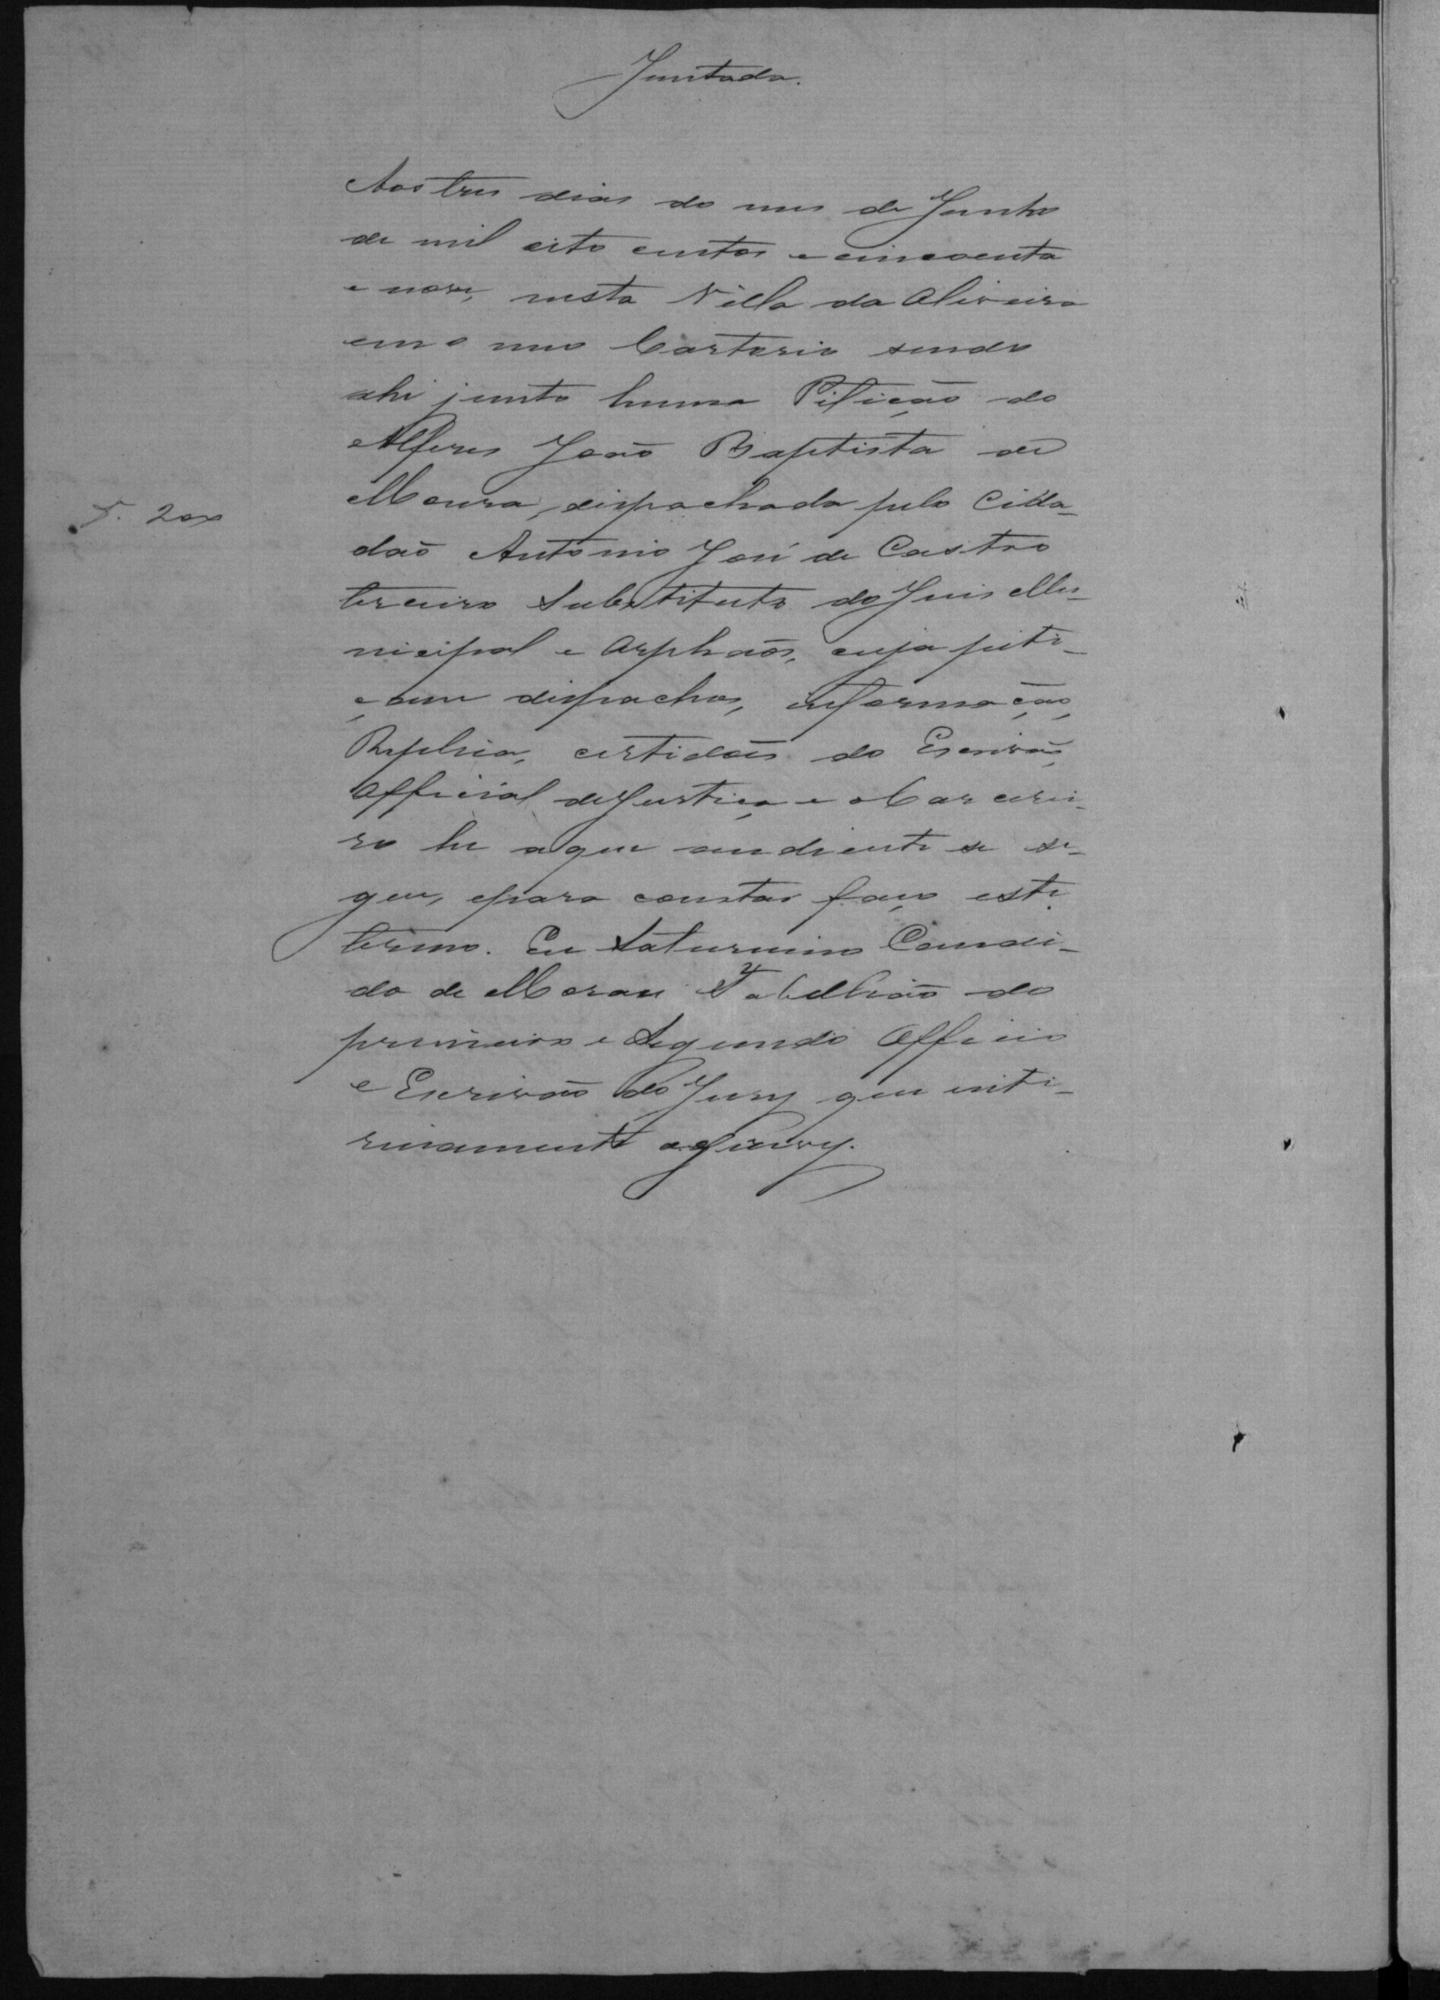 Juntada.
Aos tres dias do mes de Junho
de mil oito centos e cincoenta
e nove, nesta Villa da Oliveira
em o meo Cartorio sendo
ahi junto huma Pitição do
Alferes João Baptista de
Moura, dispachada pelo Cida-
J. 200
dão Antonio José de Castro
terceiro Substituto do Juis Mu-
nicipal e Orphaõs, cuja piti-
ção dispachos, informação,
Replica, certidão do Escrivão,
Official de Justiça e Carcerei-
ro he aque a o diante se se-
gue, epara constar faço este
termo. Eu Saturnino Candi-
do de Moraes Tabelliaõ do
primeiro e Segundo Officio
e Escrivaõ do Jury que inte-
rinamente o escrevy.